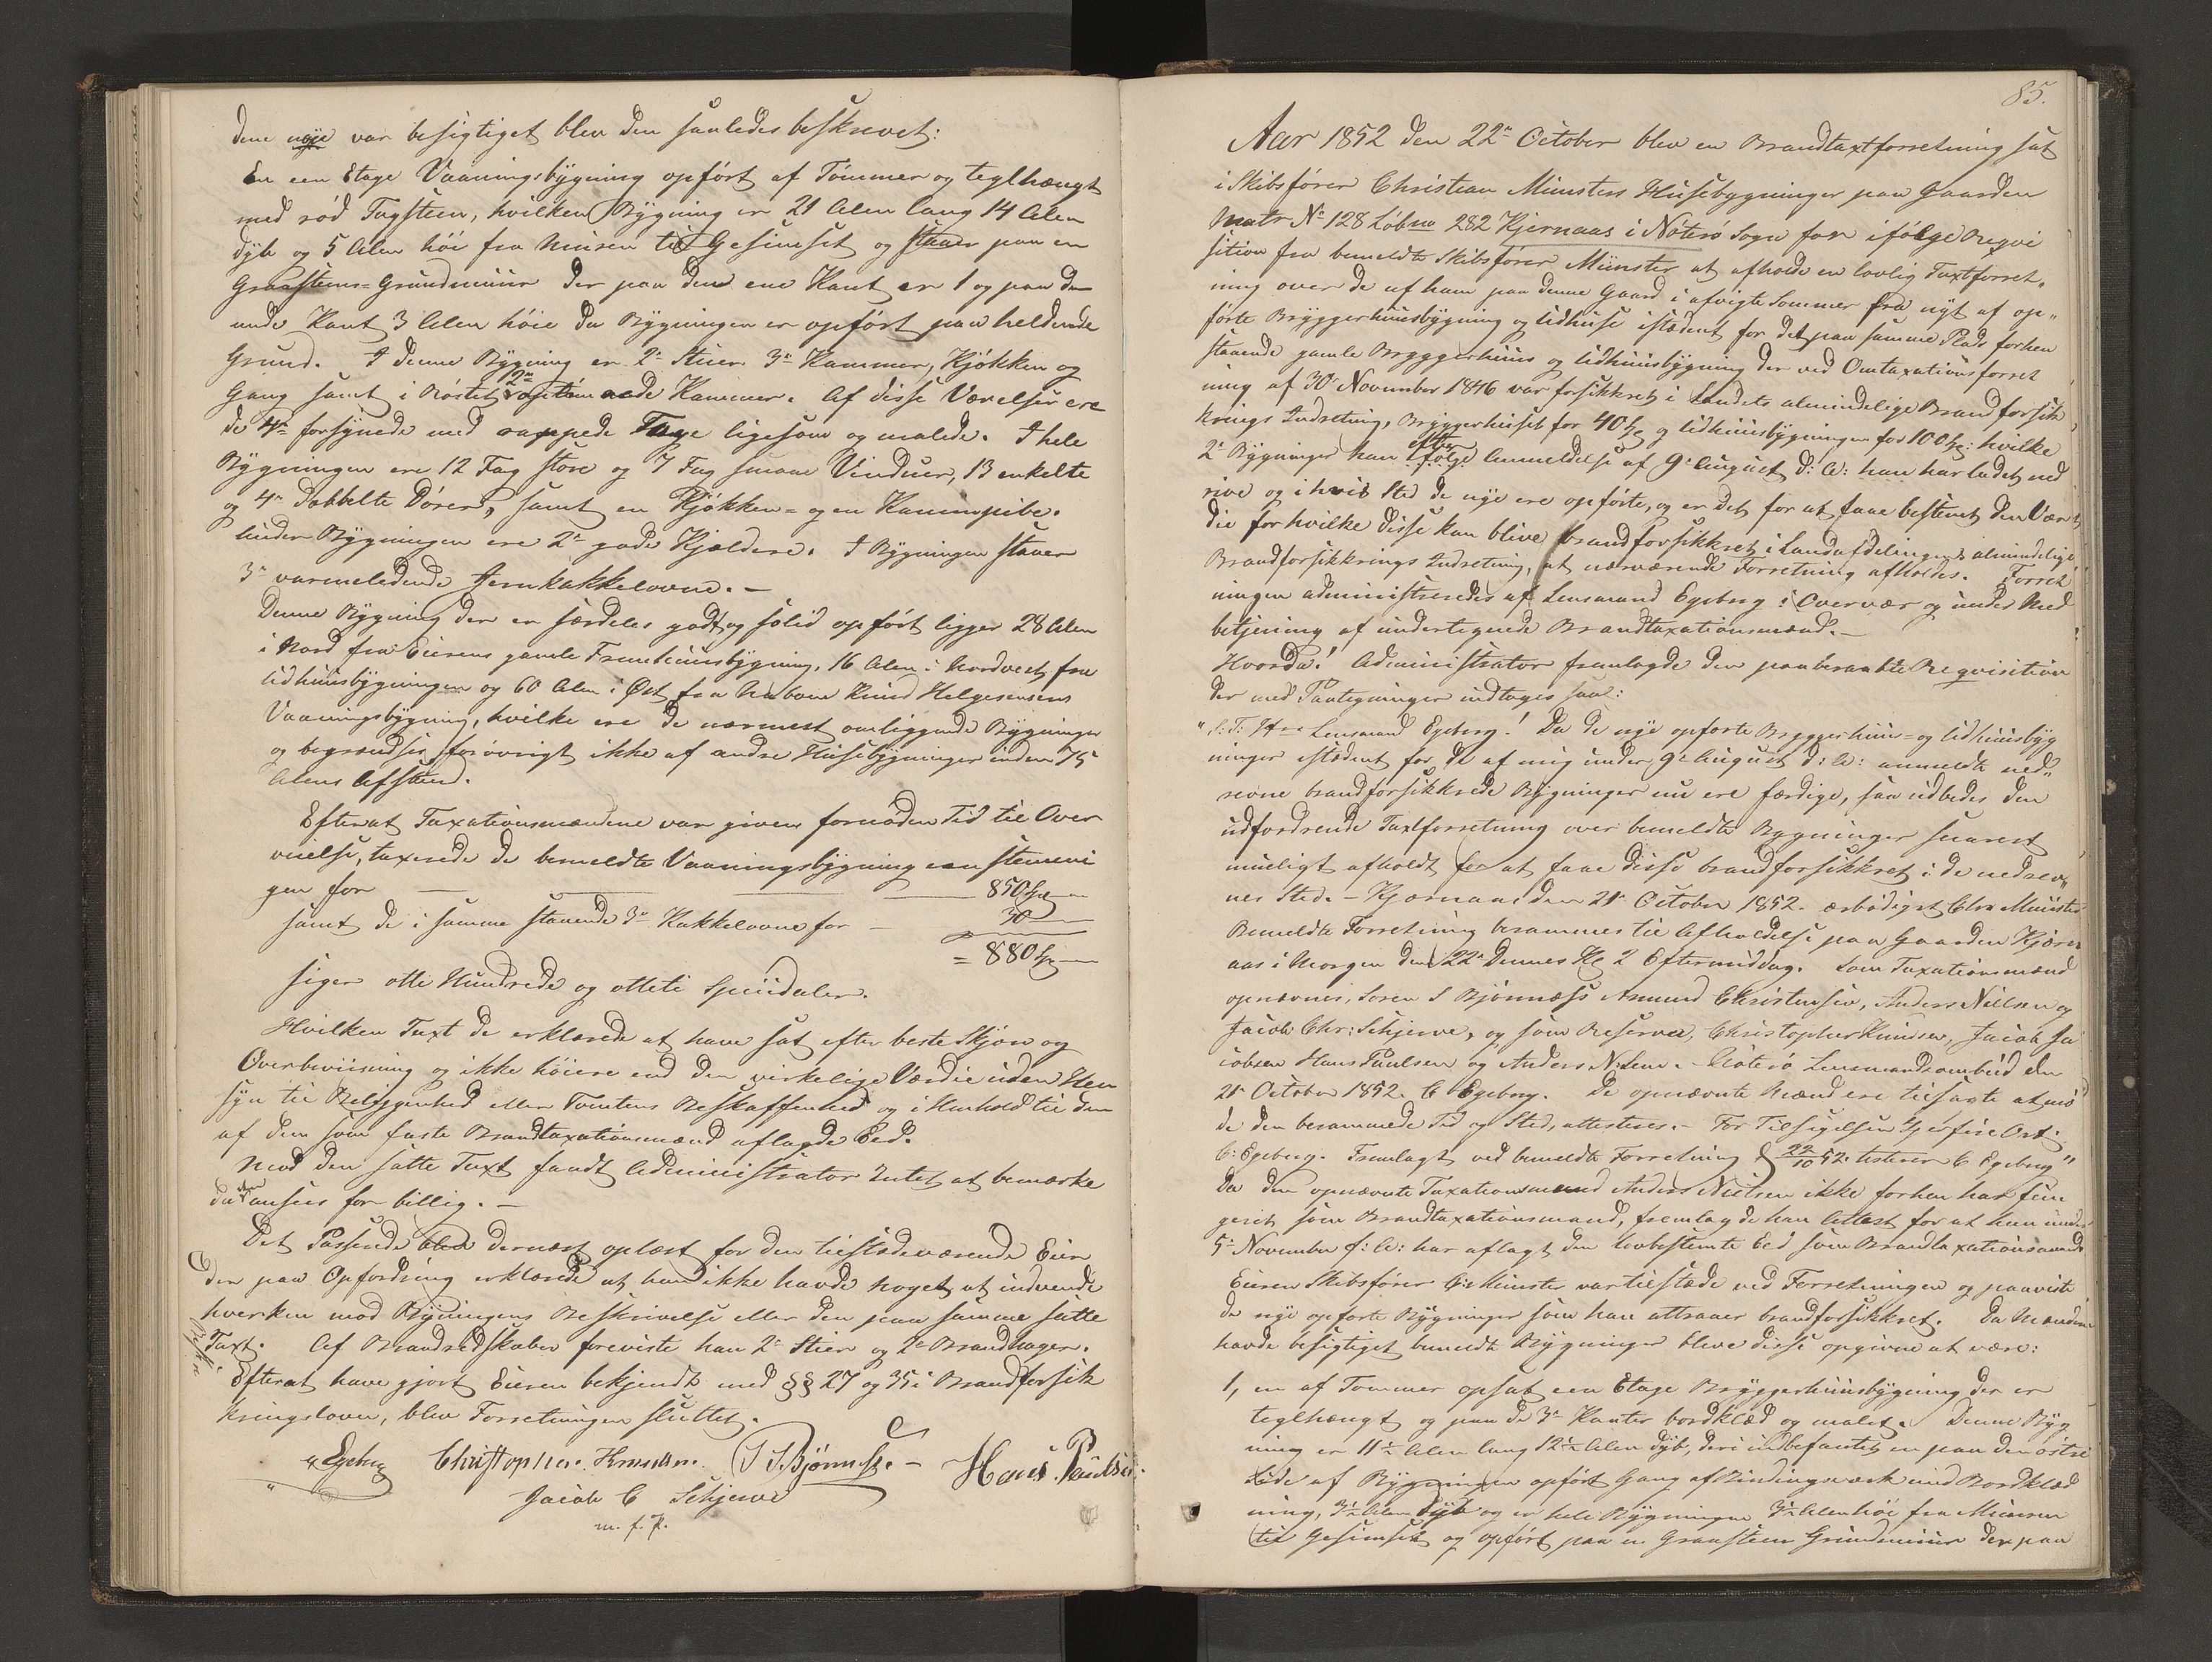 dene nye var besigtiget blev den saaledes beskrevet:
En een Etage Vaaningsbygning opført af Tømmer og teglhængt
med rød Tagsteen, hvilken Bygning er 21 Alen lang 14 Alen
dyb og 5 Alen høi fra Muren til Gesimset og staaer paa en
Graasteens-Grundmuur der paa den ene Kant er 1 og paa den
ande Kant 3 Alen høie da Bygningen er opført paa heldende
Grund. I denne Bygning er 2de Stuer 3de Kammer, Kjøkken og
Gang samt i Røstet 2de Kammer. Af disse Værelser ere
de 4re forsynede med rappede Tage ligesom og malede. I hele
Bygningen ere 12 Fag store og 7 Fag smaae Vinduer, 13 enkelte
og 4re dobbelte Døre, samt en Kjøkken- og en Kaminpibe.
Under Bygningen ere 2de gode Kjældere. I Bygningen staaer
3de varmeledende Jernkakkelovne. —
Denne Bygning der er særdeles godt og solid opført ligger 28 Alen
i Nord fra Eierens gamle Framhuusbygning, 16 Alen i Nordvest fra
Udhuusbygningen og 60 Alen i Øst fra Naboen Knud Helgesensens
Vaaningsbygning, hvilke ere de nærmest omliggende Bygninger
og begrændses forøvrigt ikke af andre Husebygninger inden 75
Alens Afstand.
Efterat Taxationsmændene var given fornøden Tid til Over
veielse, taxerede de bemeldte Vaaningsbygning eenstemmi
gen for — 850 Spd —
samt de i samme staaende 3de Kakkelovne for — 30 —
= 880 Spd —
siger otte Hundrede og otteti Speciedaler.
Hvilken Taxt de erklærede at have sat efter beste Skjøn og
Overbeviisning og ikke høiere end den virkelige Værdie uden Hen
syn til Beliggenhed eller Tomtens Beskaffenhed og i Henhold til den
af dem som faste Brandtaxationsmænd aflagde Eed.
Mod den satte Taxt fandt Administrator Intet at bemærke
da den ansees for billig. —
Det Passerede blev dernæst oplæst for den tilstædeværende Eier
der paa Opfordring erklærede at han ikke havde noget at indvende
hverken mod Bygningens Beskrivelse eller den paa samme satte
Taxt. Af Brandredskaber foreviste han 2de Stier og 2de Brandhager.
Efterat have gjort Eieren bekjendt med §§ 27 og 35 i Brandforsik
kringsloven, blev Forretningen sluttet.
Egeberg Christopher Knudsen. S S Bjønness. — Hans Paulsen
Jacob C Schjerve
m. f. P.
85.
Aar 1852 den 22de October blev en Brandtaxtforretning sat
i Skibsfører Christian Münsters Husebygninger paa Gaarden
Matr No 128 Løbno 282 Kjernaas i Nøterø Sogn for ifølge Reqvi
sition fra bemeldte Skibsfører Münster at afholde en lovlig Taxtforret-
ning over de af ham paa denne Gaard i afvigte Sommer fra nyt af op-
førte Bryggerhuusbygning og Udhuse istædent for det paa samme Plads forhen
staaende gamle Bryggerhuus og Udhuusbygning der ved Omtaxationsforret
ning af 30te November 1846 var forsikkret i Landets almindelige Brandforsik
krings Indretning, Bryggerhuset for 40 Spd og Udhuusbygningen for 100 Spd: hvilke
2de Bygninger han efter Anmeldelse af 9de August d: A: han har ladet ned
rive og i hvis Sted de nye ere opførte, og er det for at faae bestemt den Vær
die for hvilke disse kan blive brandforsikkret i Landafdelingens almindelige
Brandforsikkrings Indretning, at nærværende Forretning afholdes. Forret
ningen administreredes af Lensmand Egeberg i Overvær og under Med
betjening af undertegnede Brandtaxationsmænd. —
Hvorda! Administrator fremlagde den paaberaabte Reqvisition
der med Paategninger indtages saa:
"S: T: Hr Lensmand Egeberg! Da de nye opførte Bryggerhuus- og Udhuusbyg
ninger istædent for de af mig under 9de August d: A: anmeldte ned-
revne brandforsikkrede Bygninger nu ere færdige, saa udbedes den
udfordrende Taxtforretning over bemeldte Bygninger snarest
mueligt afholdt for at faae disse brandforsikkret i de nedrev-
nes Sted. — Kjernaas den 21de October 1852. ærbødigst Chr Münster
Bemeldte Forretning berammes til Afholdelse paa Gaarden Kjern
aas i Morgen den 22de dennes Kl 2 Eftermiddag. Som Taxationsmænd
opnævnes, Søren S Bjønness Amund Christensen, Anders Nielsen og
Jacob Chr: Schjerve, og som Reserver, Christopher Knudsen, Jacob Ja
cobsen Hans Paulsen og Anders Nilsen. — Nøterø Lensmandsombud den
21de October 1852. C Egeberg. De opnævnte Mænd ere tilsagte at mø
de den berammede Tid og Sted, attesteres. — For Tilsigelsen
C: Egeberg. Fremlagt ved bemeldte Forretning d 22/10 52. testerer C Egeberg"
Da den opnævnte Taxationsmand Anders Nielsen ikke forhen har fun
geret som Brandtaxationsmand, fremlagde han Attest for at han under
5te November f: A: har aflagt den lovbestemte Eed som Brandtaxationsmand
Eieren Skibsfører C: Münster var tilstæde ved Forretningen og paaviste
de nye opførte Bygninger som han attraaer brandforsikkret. Da Mændene
havde besigtiget bemeldte Bygninger bleve disse opgivne at være:
1, en af Tømmer opsat een Etage Bryggerhuusbygning der er
teglhængt og paa de 3de Kanter bordklæd og malet. Denne Byg
ning er 11½ Alen lang 12½ Alen dyb, deri indbefattet en paa den østre
Side af Bygningen opført Gang af Bindingsværk med Bordklæd
ning, 3½ Alen dyb og er hele Bygningen 3½ Alen høi fra Muren
til Gesimset og opført paa en Graasteens Grundmuur der paa